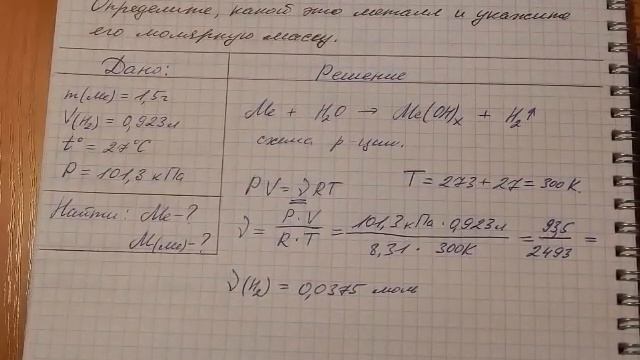 Определите, какой это металл и укажите
его молярную массу.
Дано:
m(Me) = 1,5г
V(H₂) = 0,923л
t° = 27°C
P = 101,3 кПа
Найти: Me-?
M(Me)-?
Решение
Me + H₂O → Me(OH)ₓ + H₂↑
схема р-ции.
PV = νRT T = 273 + 27 = 300К.
ν = P·V / R·T = 101,3 кПа · 0,923л / 8,31 · 300К = 93,5 / 2493 =
ν(H₂) = 0,0375 моль